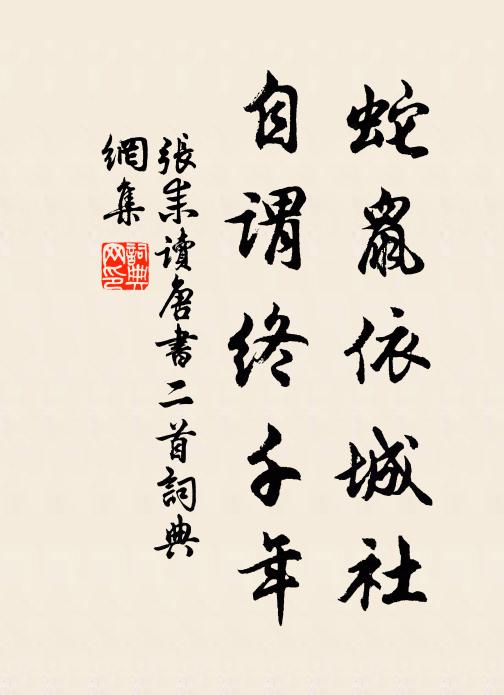 蛇鼠依城社
自谓终千年
張耒讀唐書二首詞典
網集
詞典網印